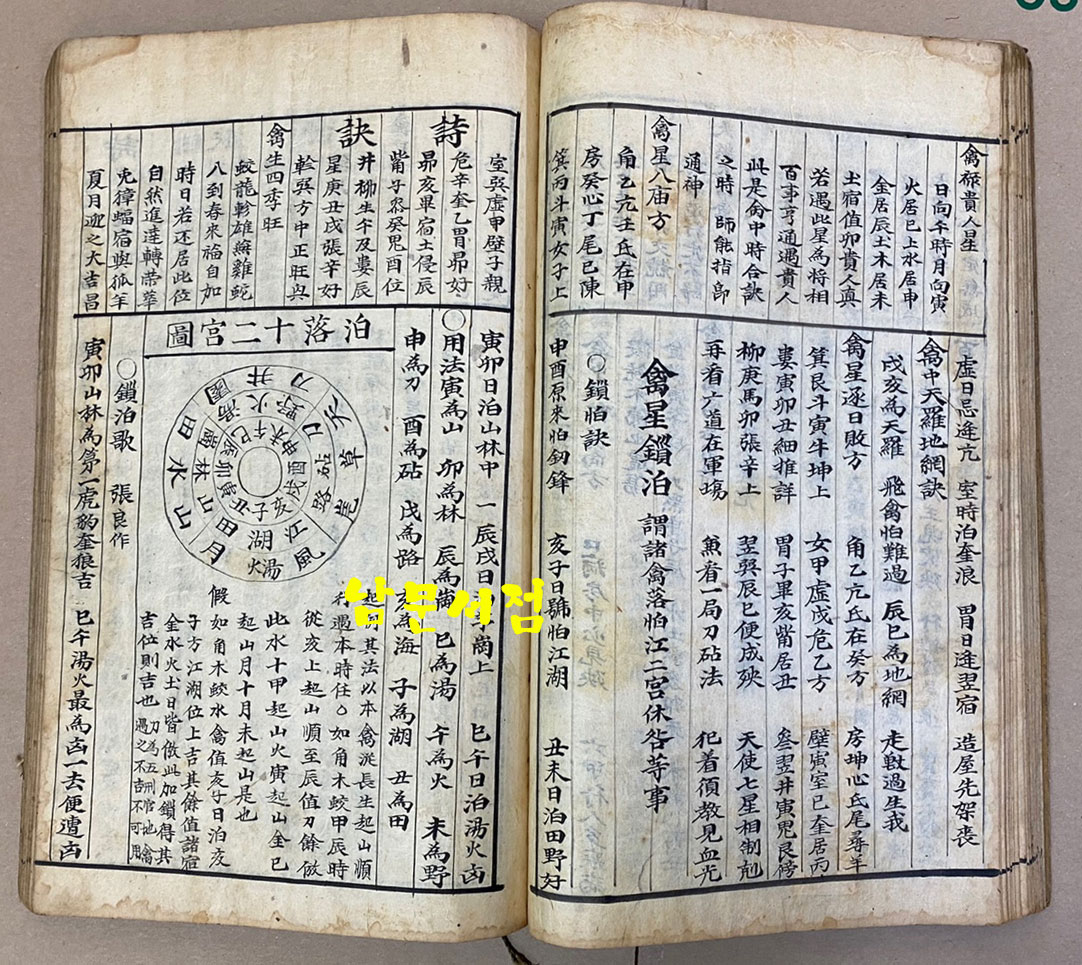 禽祿貴人星
日向午時月向寅
火居巳上水居申
金居辰土木居未
土宿值卯貴人真
若遇此星為將相
百事亨通遇貴人
此是禽中時合訣
之時 師能指即
通神
禽星八庙方
角乙亢壬氐在申
房癸心丁尾巳陳
箕丙斗寅女子上
虛日忌逢亢 室時泊奎浪 胃日逢翌宿 造屋先架喪
禽中天羅地網訣
戌亥為天羅 飛禽怕難過 辰巳為地網 走獸過生我
禽星逐日敗方 角乙亢氐在癸方 房坤心氐尾尋羊
箕艮斗寅牛坤上 女甲虛戊危乙方 壁寅室巳奎居丙
婁寅卯丑細推詳 胃子畢亥觜居丑 叄翌井寅鬼艮傍
柳庚馬卯張辛上 翌巽辰巳便成殃 天使七星相制剋
再看六道在軍塲 兼看一局刀砧法 犯着須教見血光
禽星鎖泊 謂諸禽落怕江二宮休咎等事
○鎖怕訣
申酉原來怕刼鋒 亥子日號怕江湖 丑未日泊田野好
詩訣
室巽虛甲壁子親
危辛奎乙胃昴好
昴亥畢宿土侵辰
觜子叅癸鬼酉位
井柳生午及婁辰
星庚丑戌張辛好
軫巽方中正旺與
禽生四季旺
蛟龍軫雄無雞蛇
八到春來福自加
時日若还居此位
自然進達轉荣華
兔獐蝠宿與狐羊
夏月逊之大吉昌
寅卯日泊山林中 一辰戌日 崗上 巳午日泊湯火凶
○用法寅為山 卯為林 辰為崗 巳為湯 午為火 未為野
申為刀 酉為砧 戌為路 亥為海 子為湖 丑為田
泊落十二宮圖
子丑寅卯辰巳午未申酉戌亥
湖田山林崗湯火野刀砧路江
起例其法以本禽從長生起山順
行遇本時住○如角木蛟甲辰時
從亥上起山順至辰值刀餘倣
此水十甲起山火寅起山金巳
起山月十月未起山是也
假
如角木蛟水禽值亥子日泊亥
子方江湖位上吉其餘值諸宿
金水火土日皆倣此加鎖得其
吉位則吉也 刀為五刑官地禽
遇之不吉不可用
○鎖泊歌 張良作
寅卯山林為第一虎豹奎狼吉 巳午湯火最為凶一去便遭凶
남문서점